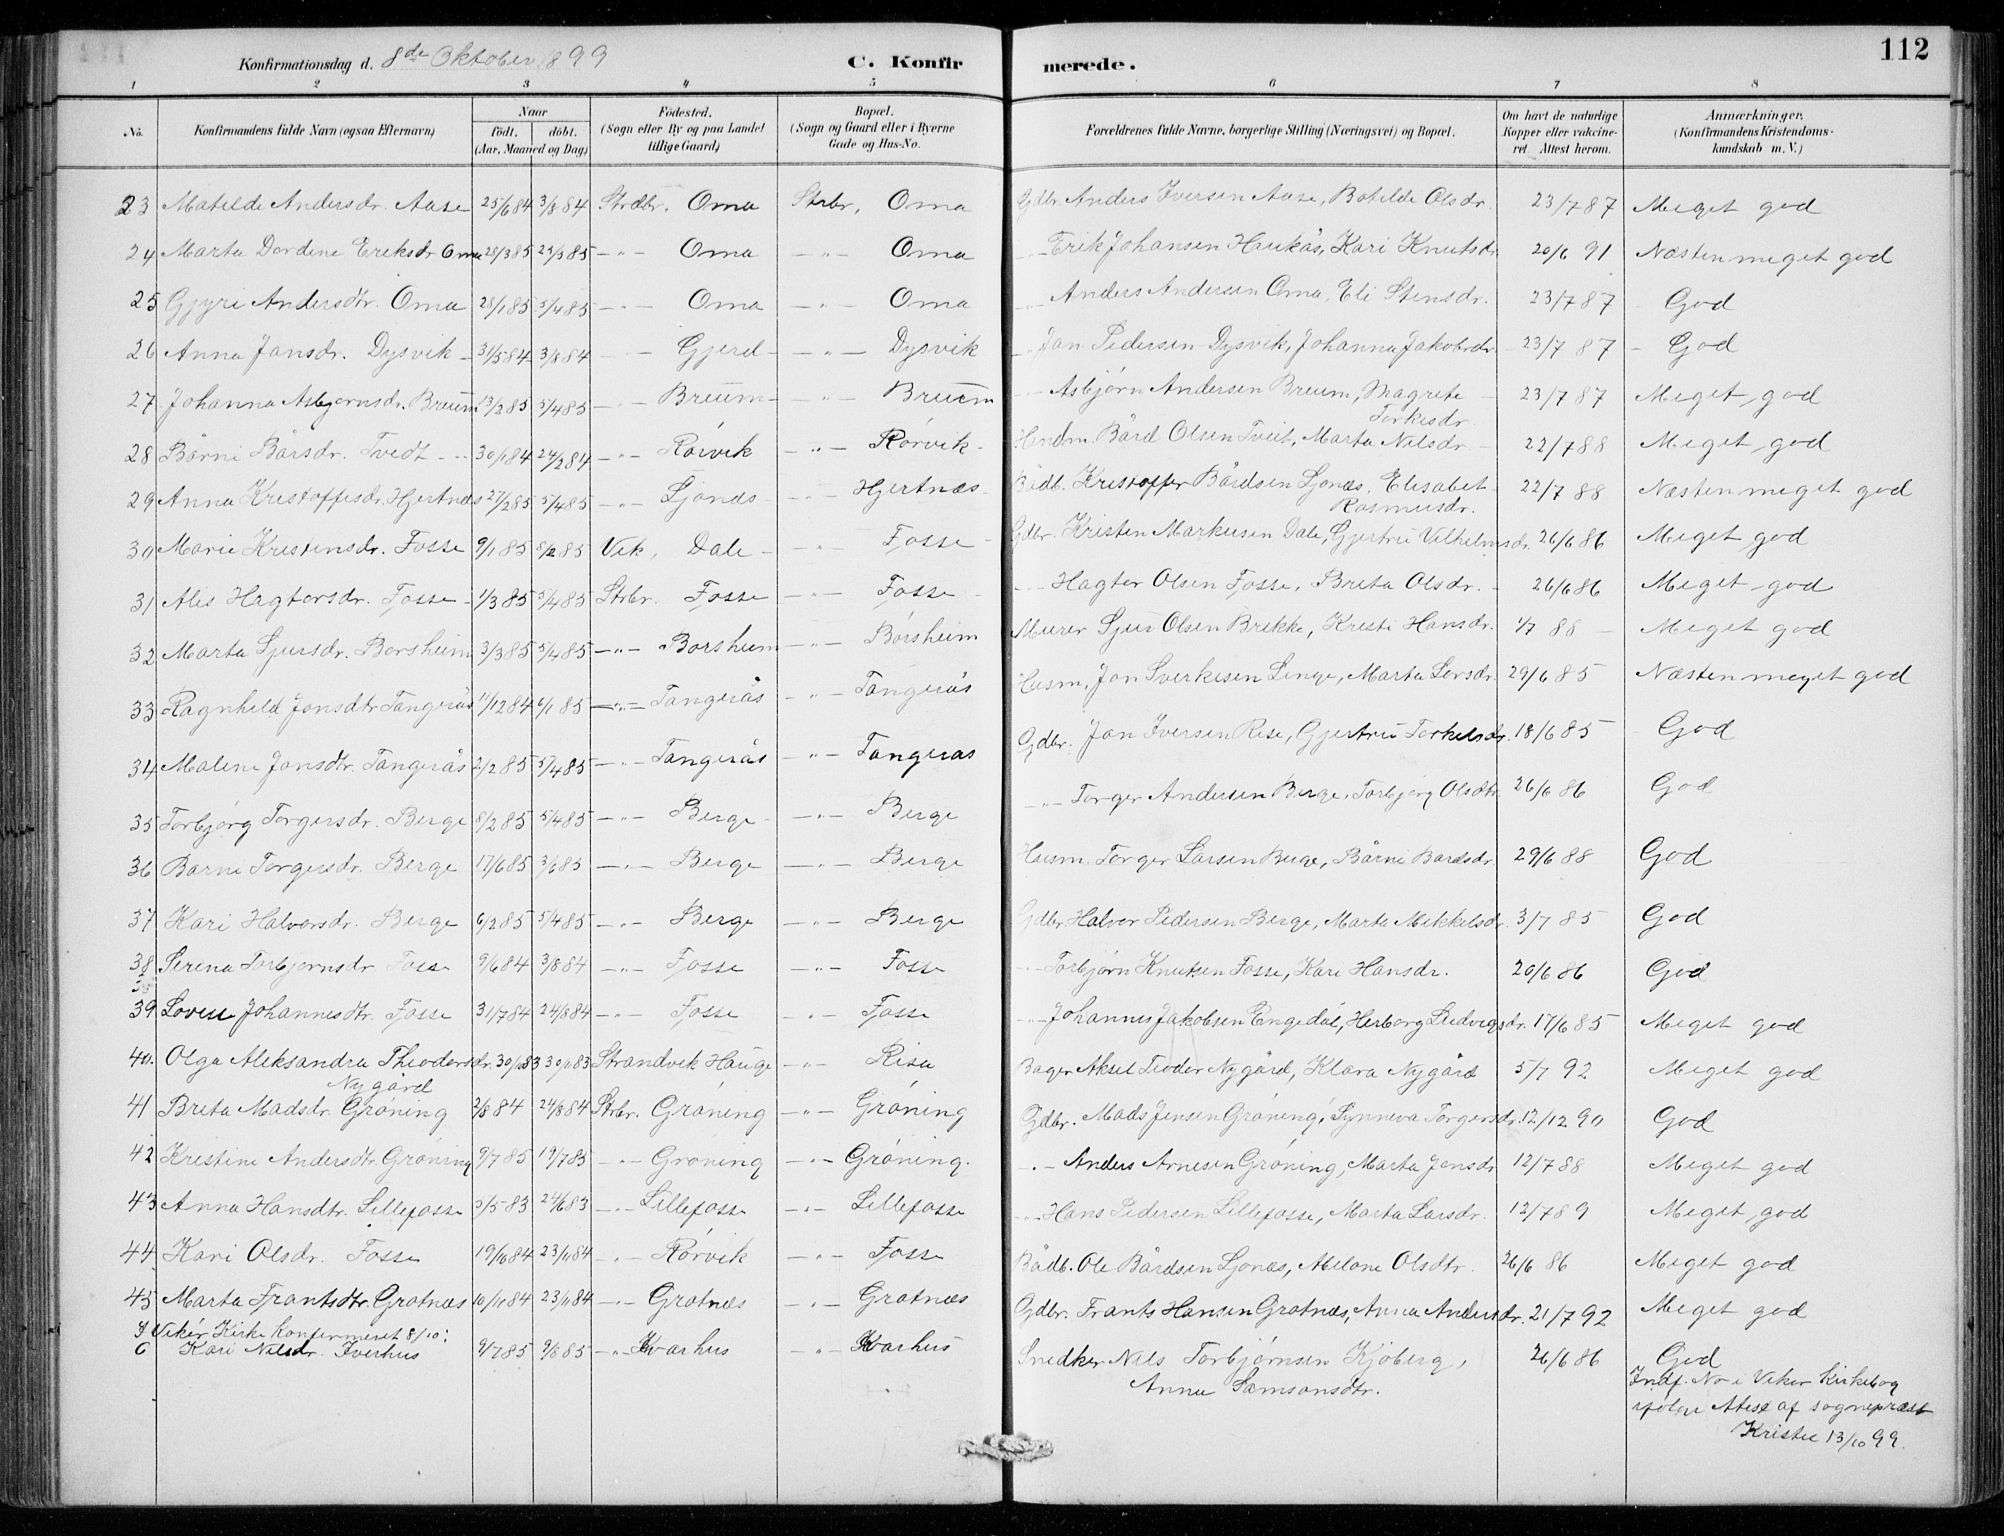 112
Konfirmationsdag d. 8de Oktober 1899 C. Konfir merede.
1 2 3 4 5 6 7 8
No. Konfirmandens fulde Navn (ogsaa Efternavn) Naar født. døbt. (Aar, Maaned og Dag) Fødested. (Sogn eller By og paa Landet tillige Gaard) Bopæl. (Sogn og Gaard eller i Byerne Gade og Hus-No. Forældrenes fulde Navne, borgerlige Stilling (Næringsvei) og Bopæl. Om havt de naturlige Kopper eller vakcineret. Attest herom. Anmærkninger. (Konfirmandens Kristendomskundskab m. V.)
23 Matilde Andersdr. Aase 25/6 84 3/8 84 Strdbr. Oma Strbr. Oma Gdbr. Anders Iversen Aase, Botilde Olsdr. 23/7 87 Meget god
24 Marta Dordene Eriksdr Oma 28/3 85 29/3 85 -"- Oma -"- Oma -"- Erik Johansen Haukås, Kari Knutsdr. 20/6 91 Næsten meget god
25 Gjyri Andersdtr. Oma 28/1 85 5/4 85 -"- Oma -"- Oma -"- Anders Andersen Oma, Eli Stensdr. 23/7 87 God
26 Anna Jansdr. Dysvik 31/5 84 3/8 84 -"- Gjerd -"- Dysvik -"- Jan Pedersen Dysvik, Johanna Jakobsdr. 23/7 87 God
27 Johanna Asbjørnsdr. Breum 13/2 85 5/4 85 -"- Breum -"- Breum -"- Asbjørn Andersen Breum, Magrete Torkisdr. 23/7 87 Meget god
28 Bårni Bårsdr. Tvedt 30/1 84 24/2 84 -"- Rørvik -"- Rørvik Husdm. Bård Olsen Tveit, Marta Nilsdr. 22/7 88 Meget god
29 Anna Kristoffisdr. Hjertnæs 27/2 85 5/4 85 -"- Ljonæs -"- Hjertnæs Bådb. Kristoffer Bårdsen Ljonæs, Elisabet Rasmusdr. 22/7 88 Næsten meget god
30 Marie Kristensdr. Fosse 9/1 85 8/2 85 Vik, Dale -"- Fosse Gdbr. Kristen Markusen Dale, Gjertru Vilhelmsdr. 26/6 86 Meget god
31 Alis Hagtorsdr. Fosse 1/3 85 5/4 85 Strbr. Fosse -"- Fosse -"- Hagtor Olsen Fosse, Brita Olsdr. 26/6 86 Meget god
32 Marta Sjursdr. Borsheim 3/3 85 5/4 85 -"- Borsheim -"- Børsheim Murer Sjur Olsen Brekke, Kristi Hansdr. 1/7 88 Meget god
33 Ragnhild Jonsdtr Tangerås 11/12 84 6/1 85 -"- Tangerås -"- Tangerås Husm. Jon Sverkesen Linge, Marta Larsdr. 29/6 85 Næsten meget god
34 Malene Jansdtr. Tangerås 2/2 85 5/4 85 -"- Tangerås -"- Tangerås Gdbr. Jan Iversen Rise, Gjertru Torkelsdr. 18/6 85 God
35 Torbjørg Torgersdr. Berge 8/2 85 5/4 85 -"- Berge -"- Berge -"- Torger Andersen Berge, Torbjørg Olsdtr. 26/6 86 God
36 Barni Torgersdr. Berge 17/6 85 3/6 83 -"- Berge -"- Berge Husm. Torger Larsen Berge, Bårni Bardsdr. 29/6 88 God
37 Kari Halvorsdr. Berge 6/2 85 5/4 85 -"- Berge -"- Berge Gdbr. Halvor Pedersen Berge, Marta Mikkelsdr. 3/7 85 God
38 Serina Torbjørnsdr Fosse 9/6 84 3/8 84 -"- Fosse -"- Fosse -"- Torbjørn Knutsen Fosse, Kari Hansdr. 26/6 86 God
39 Lovise Johannesdtr. Fosse 31/7 84 24/8 84 -"- Fosse -"- Fosse -"- Johannes Jakobsen Engedal, Herborg Ludvigsdr. 17/6 85 Meget god
40. Olga Aleksandra Theodorsdr. 30/10 83 30/11 83 Strandvik Hauge -"- Risa Bager Aksel Teodor Nygård, Klara Nygård 5/7 92 Meget god
Nygård
41 Brita Madsdr. Grøning 2/8 84 24/8 84 Strbr. Grøning -"- Grøning Gdbr. Mads Jensen Grøning, Synneva Torgersdr. 12/12 90 God
42 Kristine Andersdtr. Grøning 9/7 85 19/7 85 -"- Grøning -"- Grøning. -"- Anders Arnesen Grøning, Marta Jonsdr 12/7 88 Meget god
43 Anna Hansdtr. Lillefosse 5/5 83 24/6 83 -"- Lillefosse -"- Lillefosse -"- Hans Pedersen Lillefosse, Marta Larsdr. 12/7 89 Meget god
44 Kari Olsdr. Fosse 19/10 84 23/11 84 -"- Rørvik -"- Fosse Bådb. Ole Bårdsen Ljonæs, Melone Olsdtr. 26/6 86 Meget god
45 Marta Frantsdtr. Grotnæs 10/11 84 23/11 84 -"- Grotnæs -"- Grotnæs Gdbr. Frants Hansen Grotnæs, Anna Andersdr. 21/7 92 Meget god
I Vikør Kirke konfirmeret 8/10:
6 Kari Nilsdr. Kvarhus 9/7 85 9/8 85 -"- Kvarhus -"- Kvarhus Snedker Nils Torbjørnsen Kjøberg, 26/6 86 God
Anna Samsonsdtr.
Indf. No i Vikør Kirkebog
ifølge Attest af sogneprest
13/10 99.